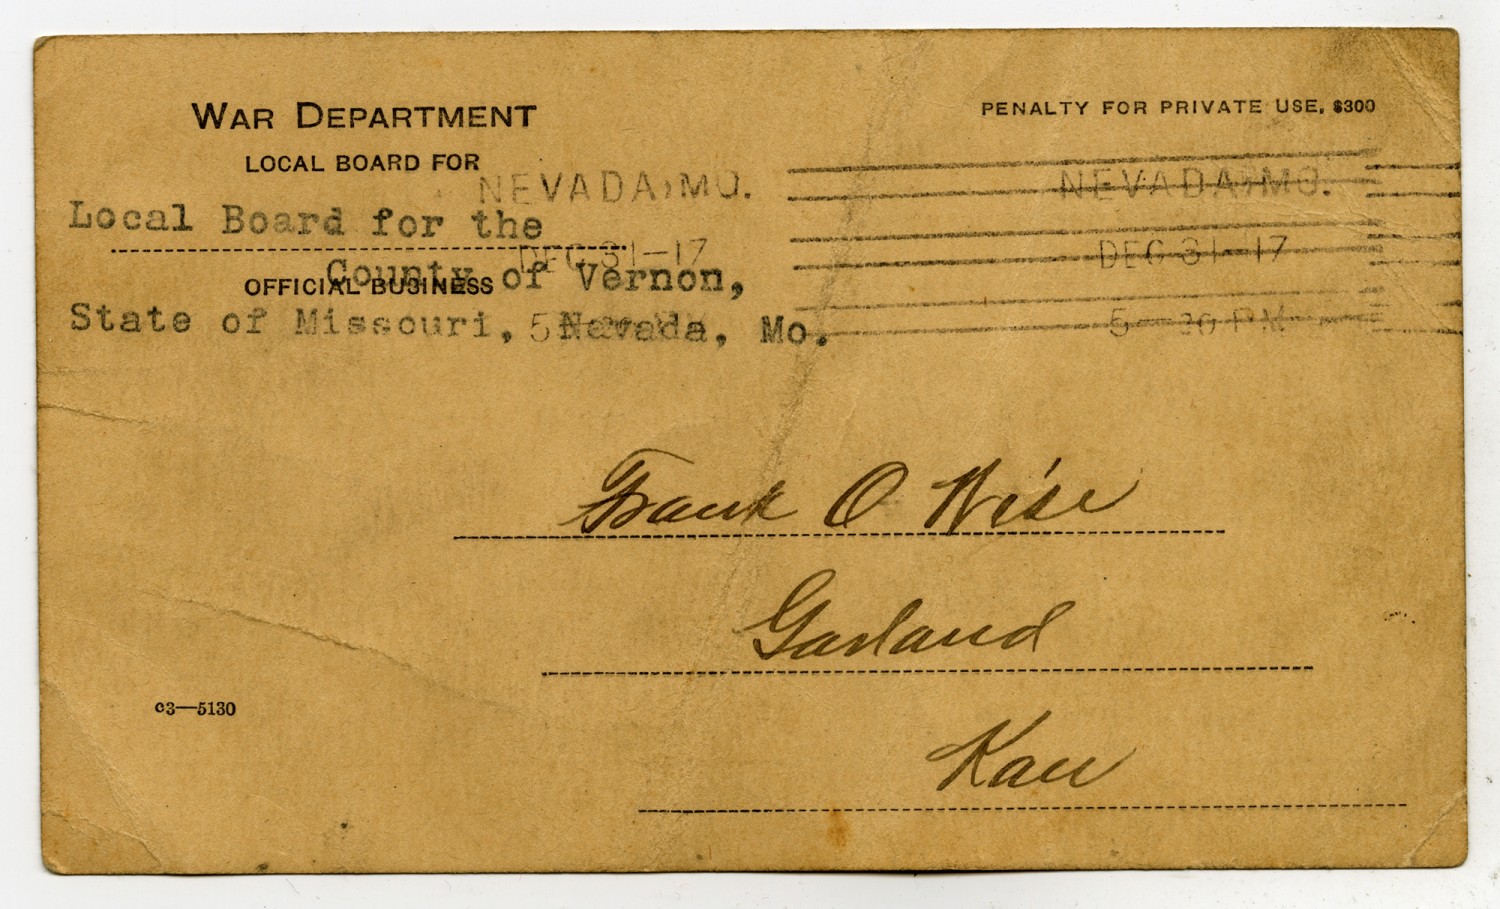 WAR DEPARTMENT
PENALTY FOR PRIVATE USE, $300
LOCAL BOARD FOR
NEVADA, MO.
NEVADA, MO.
Local Board for the
DEC 31-17
DEC 31-17
County of Vernon,
OFFICIAL BUSINESS
State of Missouri, Nevada, Mo.
5-30 PM
Frank O Wise
Garland
Kan
c3—5130